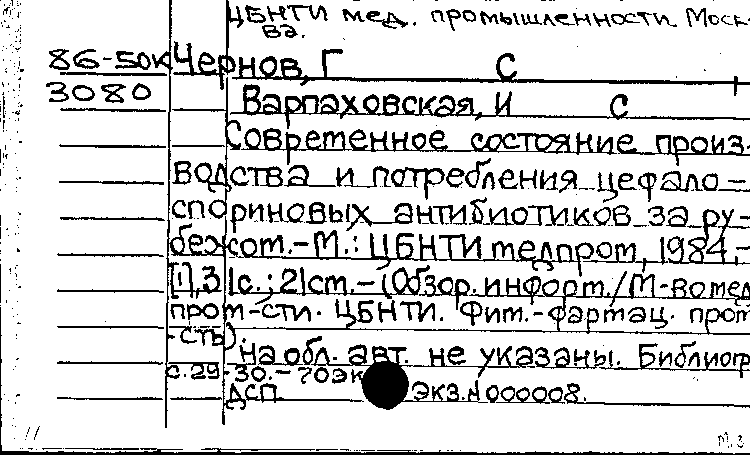 ЦБНТИ мед. промышленности. Моск-
ва.
86-50К Чернов, Г С
3080 Варпаховская, И С
Современное состояние произ-
водства и потребления цефало-
спориновых антибиотиков за ру-
бежом.-М.: ЦБНТИ медпром, 1984,-
[1],31с.; 21см.-(Обзор.информ./М-во мед
пром-сти. ЦБНТИ. Фим.-фармац. пром
-сть).
На обл. авт. не указаны. Библиогр
с.29-30.-70эк
ДСП ЭКЗ.N000008.